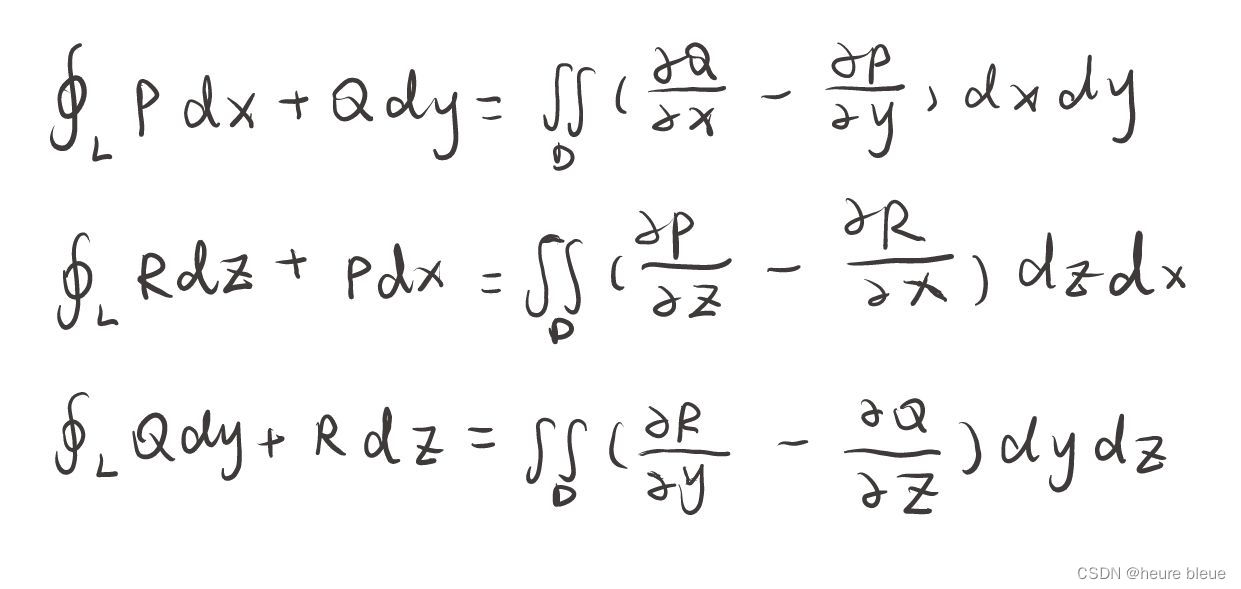 ∮_L P dx + Q dy = ∬_D (∂Q/∂x − ∂P/∂y) dx dy
∮_L R dz + P dx = ∬_D (∂P/∂z − ∂R/∂x) dz dx
∮_L Q dy + R dz = ∬_D (∂R/∂y − ∂Q/∂z) dy dz
CSDN @heure bleue